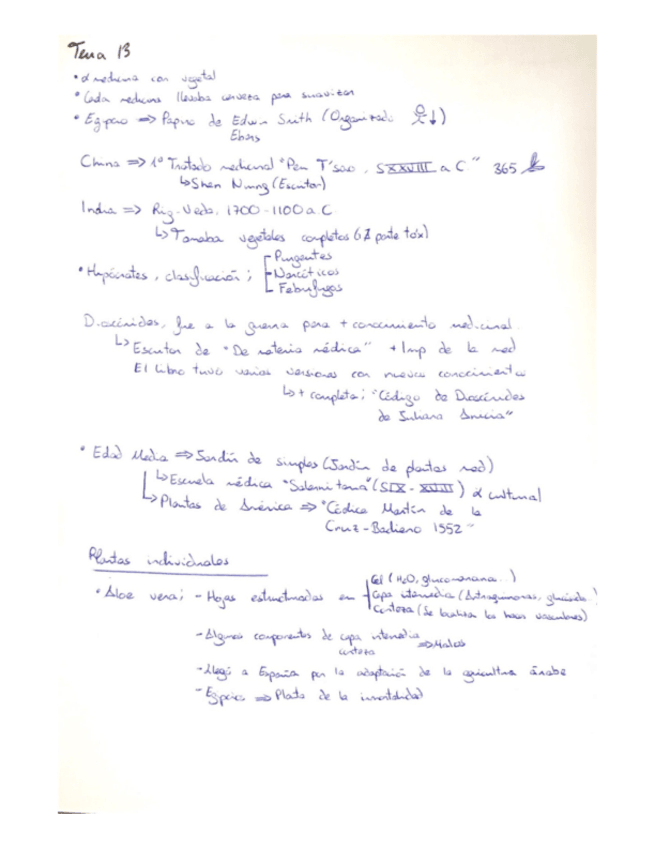 Tema 13
• α medicina con vegetal
• Cada medicina llevaba cerveza para suavizar
• Egipcio => Papiro de Edwin Smith (Organizado ↓)
Ebers
China => 1º Tratado medicinal "Pen T'sao, SXXVIII a C." 365
↳ Shen Nung (Escritor)
India => Rig-Veda. 1700-1100 a.C.
↳ Tomaba vegetales completos ( parte tóx)
• Hipócrates, clasificación; Purgantes
Narcóticos
Febrífugos
Dioscórides, fue a la guerra para + conocimiento medicinal.
↳ Escritor de "De materia médica" + Imp de la med
El libro tuvo varias versiones con nuevos conocimientos
↳ + completa; "Código de Dioscórides
de Juliana Anicia"
• Edad Media => Jardín de simples (Jardín de plantas med)
↳ Escuela médica "Salernitana" (SIX - XVIII) α cultural
↳ Plantas de América => "Códice Martín de la
Cruz-Badiano 1552"
Plantas individuales
• Aloe vera; - Hojas estructuradas en Gel (H2O, glucomanana...)
Capa intermedia (Antraquinonas, glúcido..)
Corteza (Se localiza los haces vasculares)
- Algunos componentes de capa intermedia => Malos
corteza
- Llegó a España por la adaptación de la agricultura árabe
- Egipcios => Planta de la inmortalidad